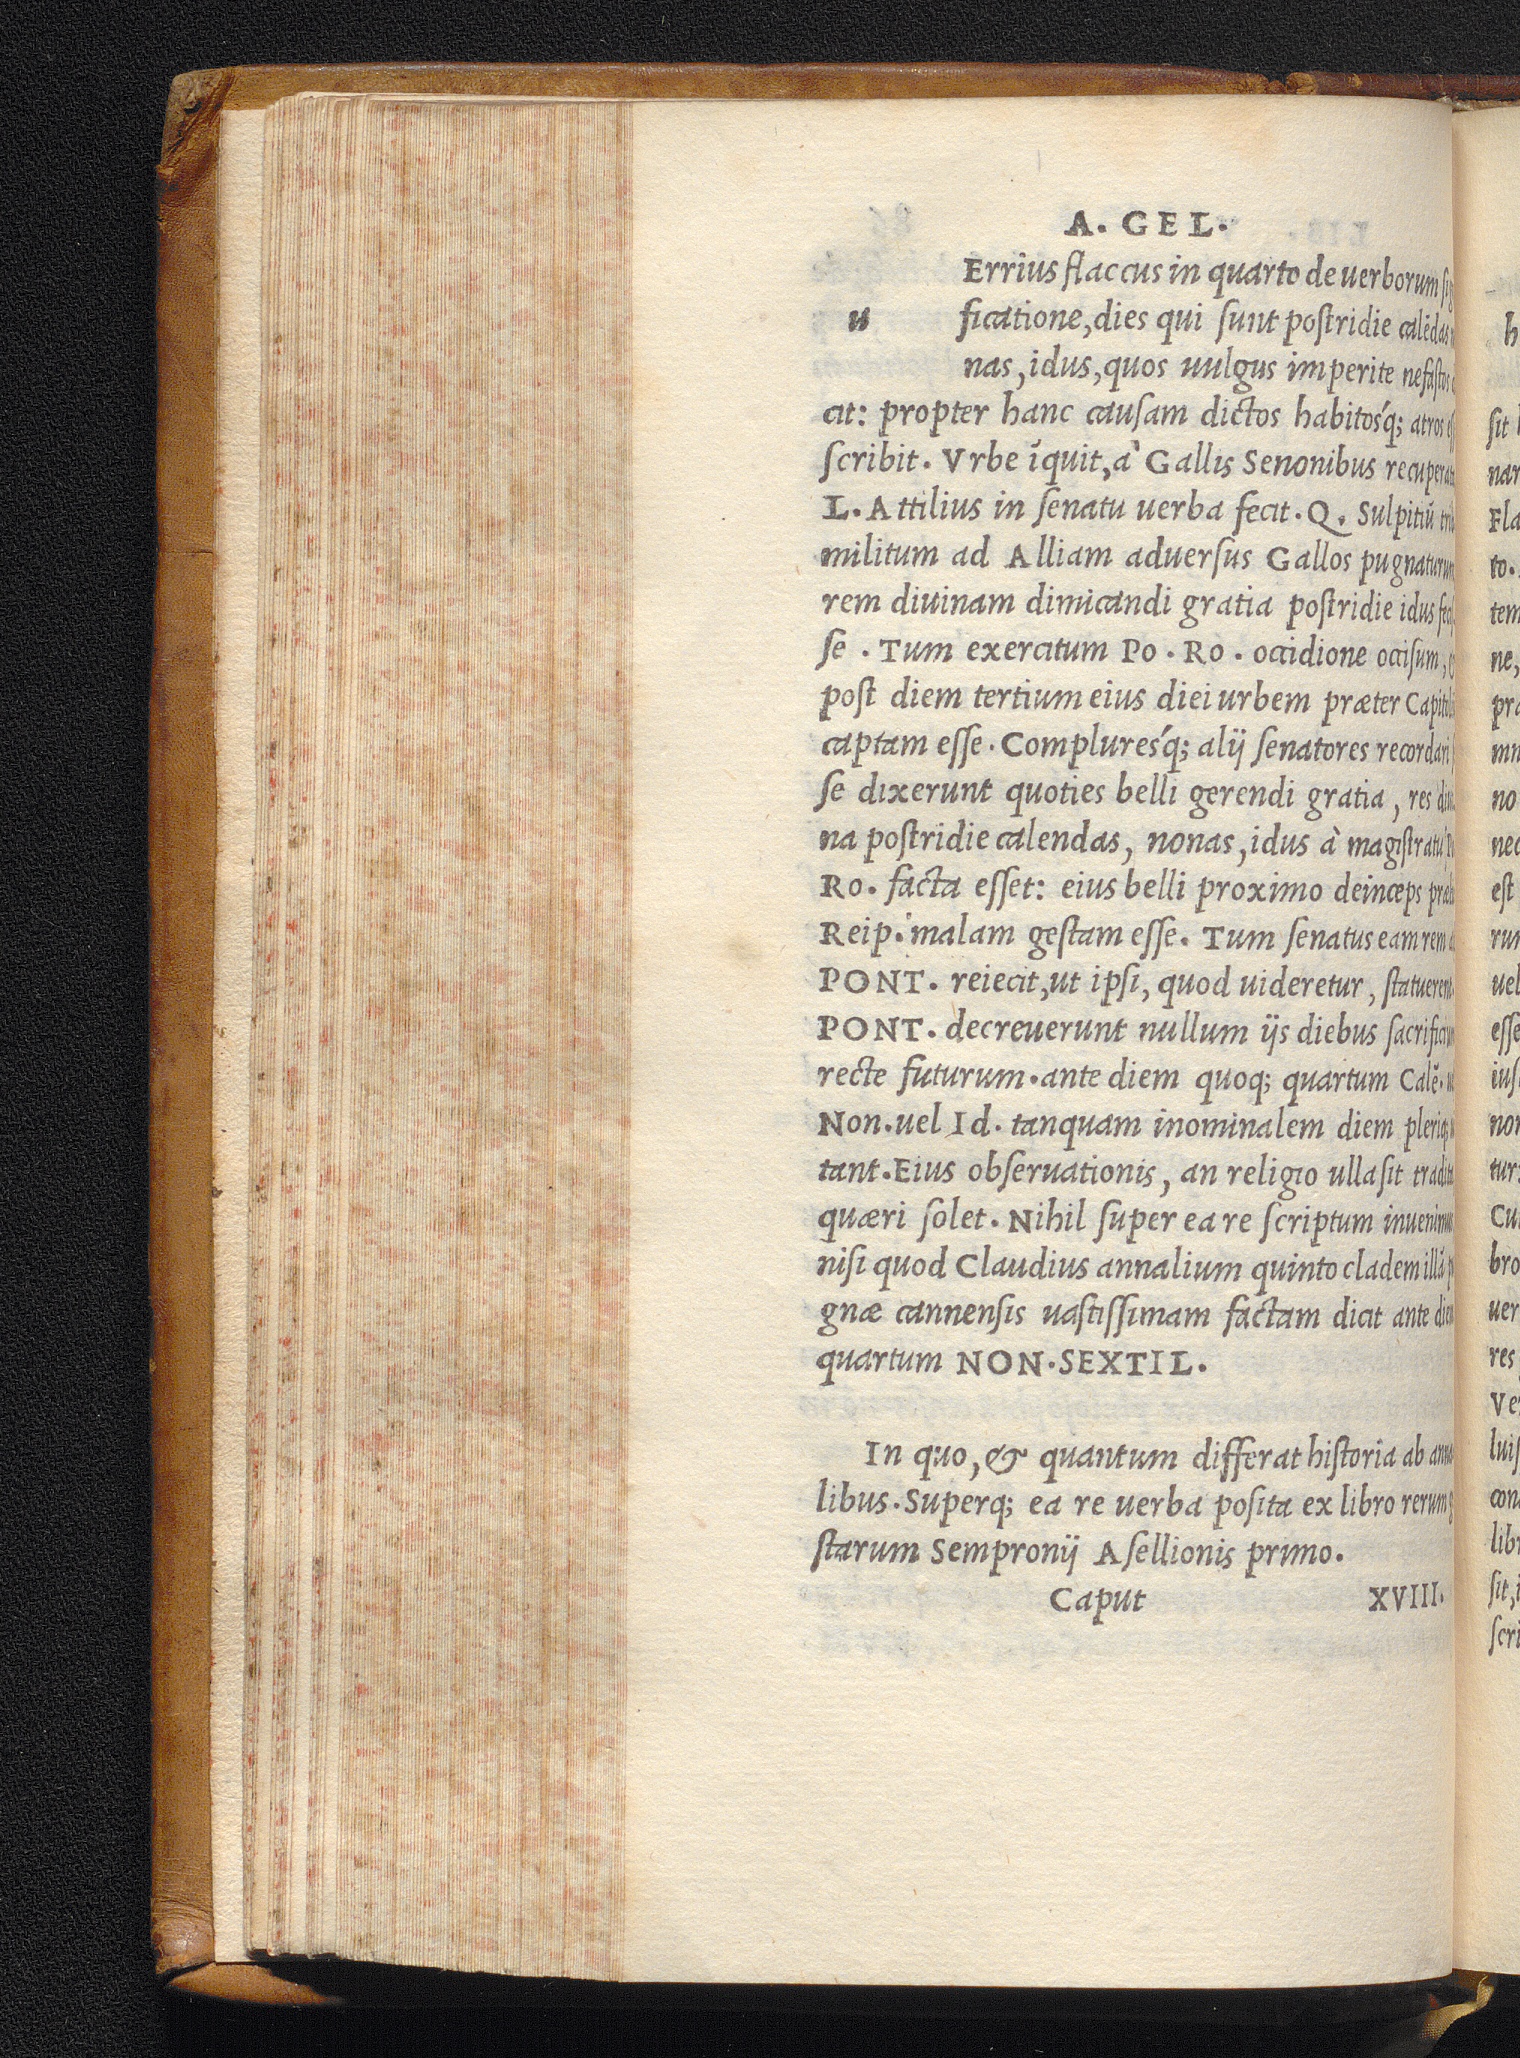 A. GEL.
Errius flaccus in quarto de uerborum
u ficatione, dies qui sunt postridie calēdas
nas, idus, quos uulgus imperite nefastos
cit: propter hanc causam dictos habitosq́; atros
scribit. Vrbe īquit, à Gallis Senonibus
L. Attilius in senatu uerba fecit. Q. Sulpitiū
militum ad Alliam aduersus Gallos
rem diuinam dimicandi gratia postridie idus
se. Tum exercitum Po. Ro. occidione occisum,
post diem tertium eius diei urbem præter
captam esse. Compluresq́; alij senatores recordari
se dixerunt quoties belli gerendi gratia, res
na postridie calendas, nonas, idus à magistratu
Ro. facta esset: eius belli proximo deinceps
Reip. malam gestam esse. Tum senatus eam rem
PONT. reiecit, ut ipsi, quod uideretur,
PONT. decreuerunt nullum ijs diebus
recte futurum. ante diem quoq; quartum Calē.
Non. uel Id. tanquam inominalem diem
tant. Eius obseruationis, an religio ulla sit
quæri solet. Nihil super ea re scriptum
nisi quod Claudius annalium quinto cladem illā
gnæ cannensis uastissimam factam dicit ante
quartum NON. SEXTIL.
In quo, & quantum differat historia ab
libus. Superq; ea re uerba posita ex libro rerum
starum Sempronij Asellionis primo.
Caput XVIII.
h
sit
Fla
to.
tem
ne,
no
est
uel
esse
res